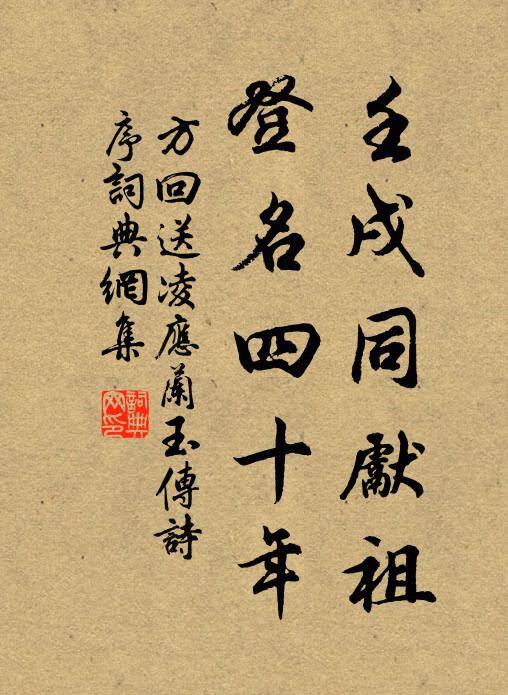 壬戌同獻祖
登名四十年
方回送凌應蘭玉傳詩
序詞典網集
詞典網印